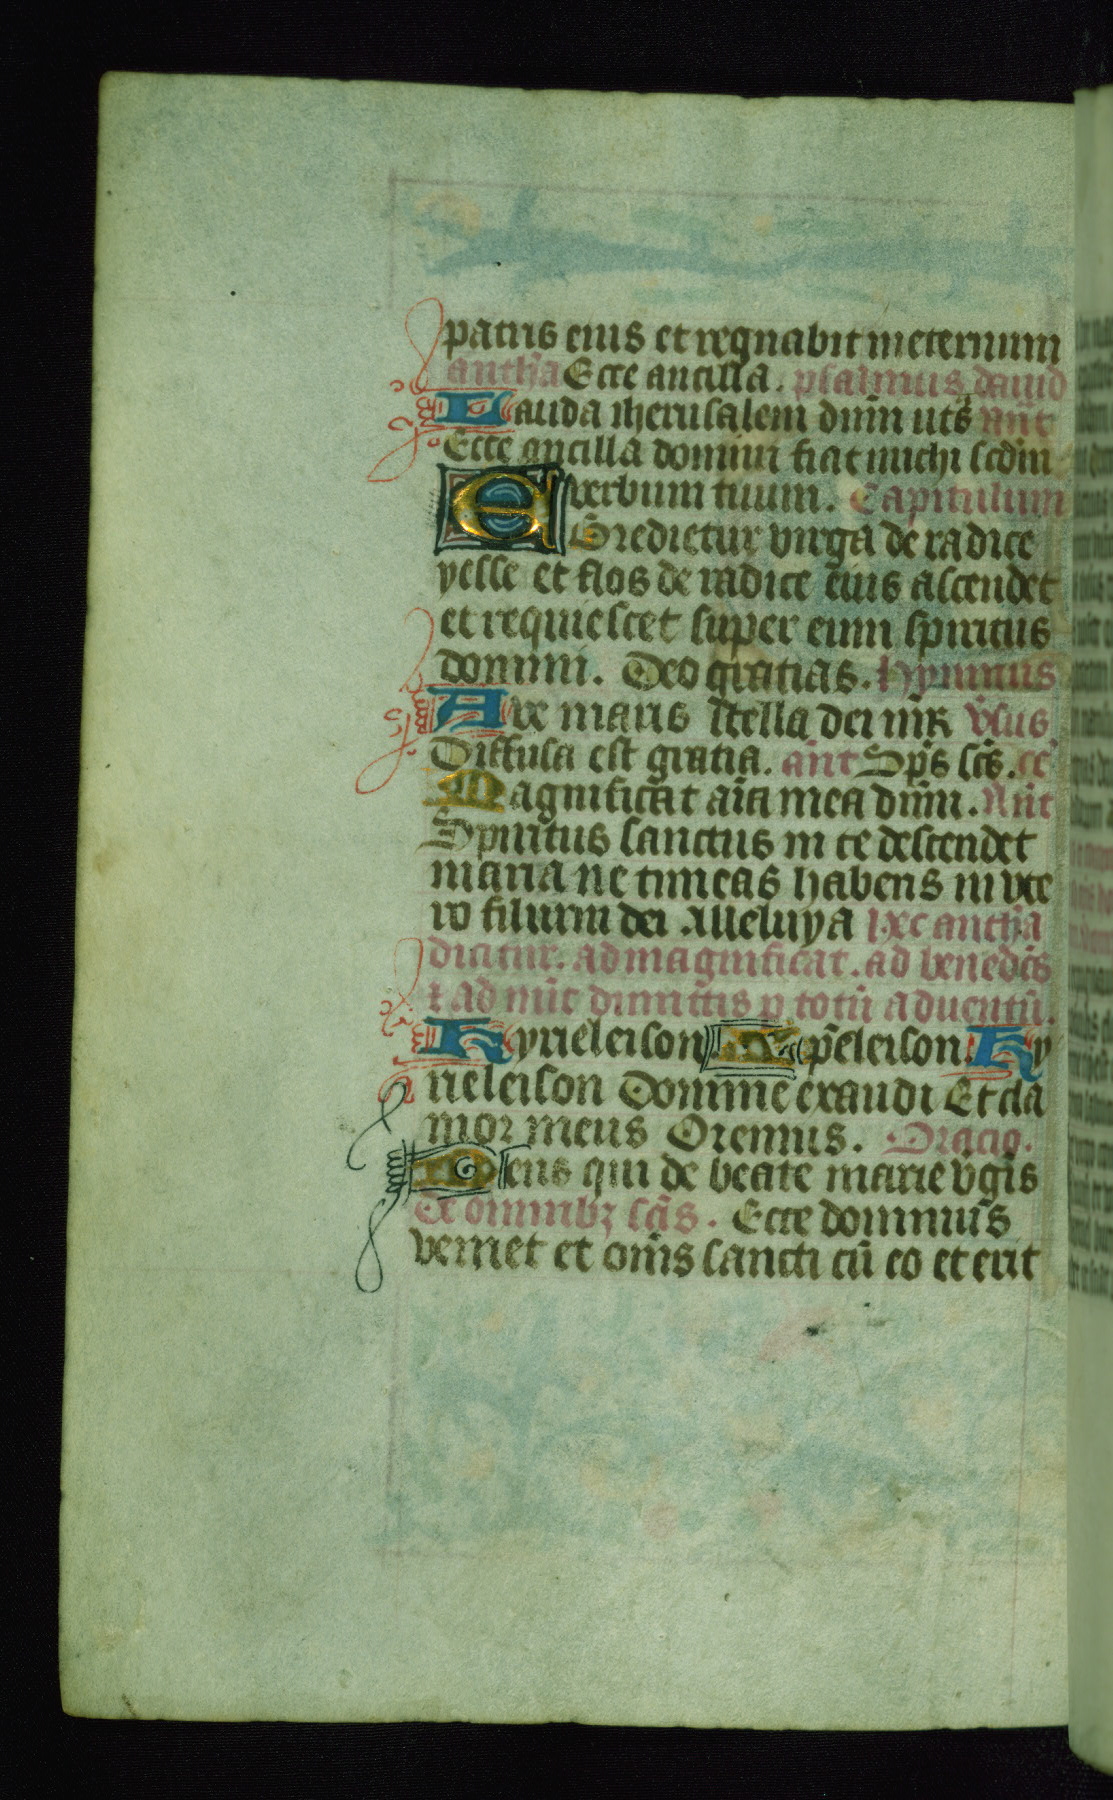 patris eius et regnabit ineternum
antih̄a Ecce ancilla. psalmus dauid
Lauda iherusalem dn̄m uts̄ an̄t
Ecce ancilla domini fiat michi scdm
uerbum tuum. Capitulum
EGredietur virga de radice
yesse et flos de radice eius ascendet
et requiescet super eum spiritus
domini. Deo gratias. Hympnus
Aue maris stella dei mr̄ v̄sus
Diffusa est gratia. an̄t Sp̄s sc̄s.
Magnificat aīa mea dn̄m. An̄t
Spiritus sanctus in te descendet
maria ne timeas habens in vte
ro filium dei. Alleluya hec anth̄a
dicitur. ad magnificat. ad benedc̄s
⁊ ad nūc dimittis p totū aduentū.
Kyrieleison Xp̄eleison. Ky
rieleison Domine exaudi Et cla
mor meus Oremus. Oracio.
Deus qui de beate marie v̄gīs
De omnibꝫ sc̄is. Ecce dominus
veniet et om̄s sancti cū eo et erit